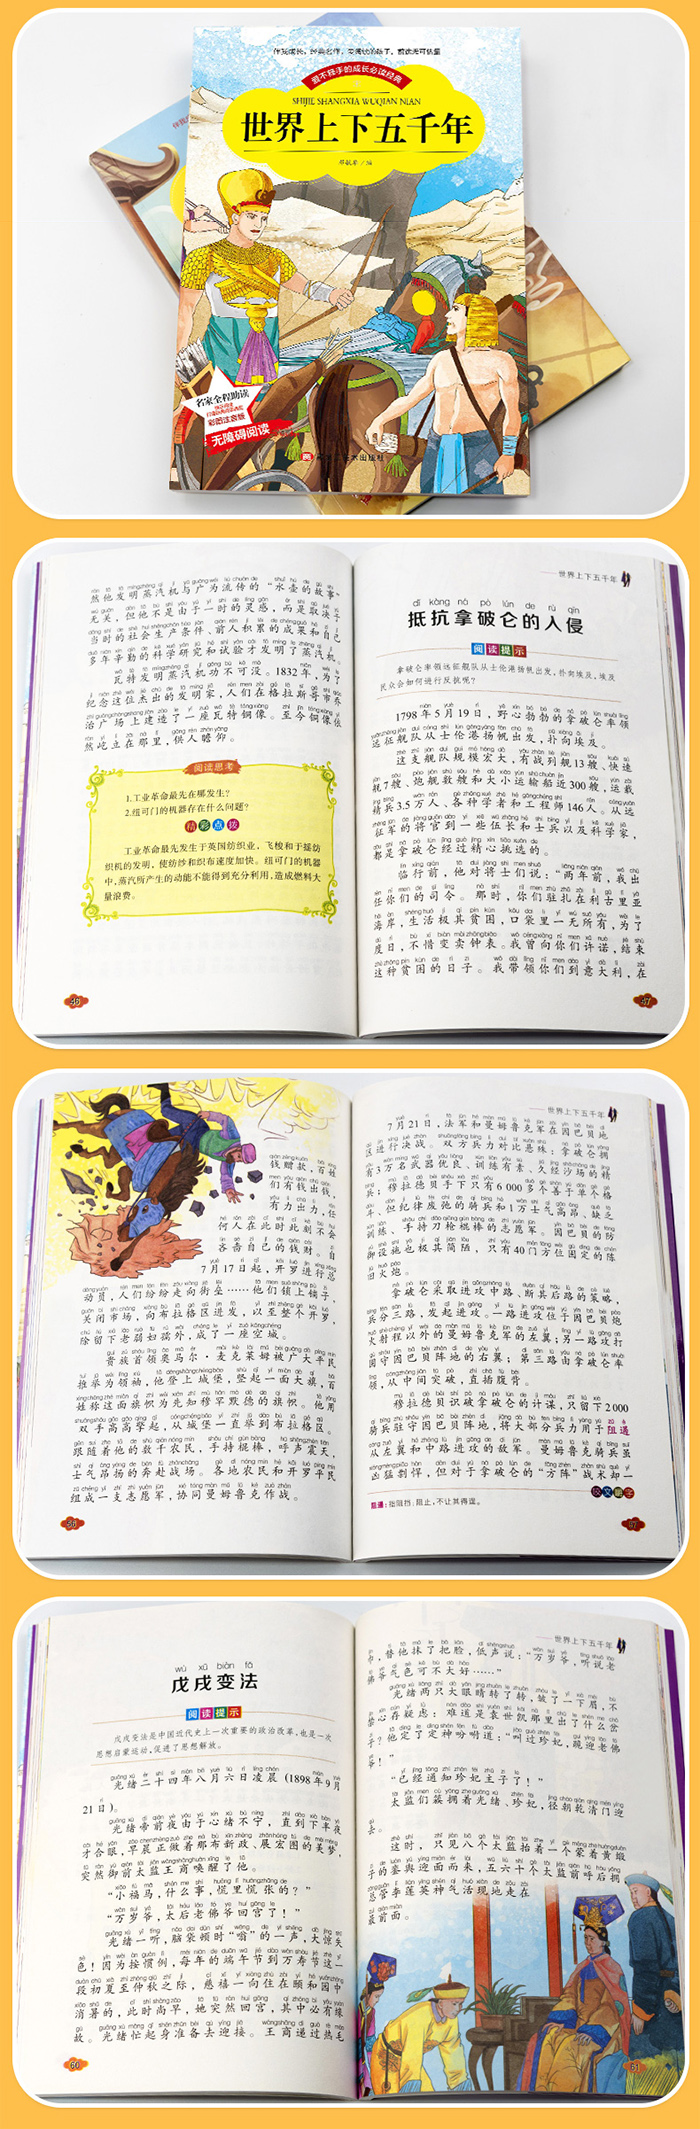 伴我成长，经典名作，爱阅读的孩子，前途无可估量
爱不释手的成长必读经典
SHIJIE SHANGXIA WUQIAN NIAN
世界上下五千年
名家全程助读
彩图注音版
无障碍阅读
然他发明蒸汽机与广为流传的“水壶的故事”
无关，但他不是由于一时的灵感，而是取决于
当时的社会生产条件、前人积累的成果和自己
多年辛勤的科学研究和试验才发明了蒸汽机。
瓦特发明蒸汽机功不可没。1832年，为了
纪念这位杰出的发明家，人们在格拉斯哥市乔
治广场上建造了一座瓦特铜像。至今铜像依
然屹立在那里，供人瞻仰。
阅读思考
1.工业革命最先在哪发生？
2.纽可门的机器存在什么问题？
精彩点拨
工业革命最先发生于英国纺织业，飞梭和手摇纺
织机的发明，使纺纱和织布速度加快。纽可门的机器
中，蒸汽所产生的动能不能得到充分利用，造成燃料大
量浪费。
46
世界上下五千年
dǐ kàng ná pò lún de rù qīn
抵抗拿破仑的入侵
阅读提示
拿破仑率领远征舰队从土伦港扬帆出发，扑向埃及，埃及
民众会如何进行反抗呢？
1798年5月19日，野心勃勃的拿破仑率领
远征舰队从土伦港扬帆出发，扑向埃及。
这支舰队规模宏大，有战列舰13艘、快速
舰7艘、炮舰数艘和大小运输船近300艘，运载
精兵3.5万人、各种学者和工程师146人。从远
征军的将官到一些伍长和士兵以及科学家，
都是拿破仑经过精心挑选的。
临行前，他对将士们说：“两年前，我出
任你们的司令。那时，你们驻扎在利古里亚
海岸，生活极其贫困，口袋里一无所有，为了
度日，不惜变卖钟表。我曾向你们许诺，结束
这种贫困的日子。我带领你们到意大利，在
47
钱赠款，百姓
们有钱出钱，
有力出力，任
何人在此时此刻不会
吝啬自己的钱财。自
7月17日起，开罗进行总
动员，人们纷纷走向街垒……他们锁上铺子，
关闭市场，向布拉格区进发，以至整个开罗，
除留下老弱妇孺外，成了一座空城。
贵族首领奥马尔·麦克莱姆被广大平民
推举为领袖，他登上城堡，竖起一面大旗，百
姓称这面旗帜为先知穆罕默德的旗帜。他用
双手高高擎起，从城堡一直举到布拉格区。
跟随着他的数千农民，手持棍棒，呼声震天，
士气昂扬的奔赴战场。各地农民和开罗平民
组成一支志愿军，协同曼姆鲁克作战。
56
世界上下五千年
7月21日，法军和曼姆鲁克军在因巴贝地
区进行决战。双方兵力对比悬殊：拿破仑拥
有3万名武器优良、训练有素、久经沙场的精
兵；穆拉德贝手下只有6000多个善于单个格
斗、但纪律废弛的骑兵和1万士气高昂、缺乏
训练、手持刀枪棍棒的志愿军。因巴贝的防
御设施也极其简陋，只有40门方位固定的陈
旧火炮。
拿破仑采取进攻中路、断其后路的策略，
兵分三路，发起进攻。一路进攻位于因巴贝炮
火射程以外的曼姆鲁克军的左翼；另一路攻打
固守因巴贝阵地的右翼；第三路由拿破仑率
领，从中间突破，直插腹背。
穆拉德贝识破拿破仑的计谋，只留下2000
骑兵驻守因巴贝阵地，将大部分兵力用于阻遏
从左翼和中路进攻的敌军。曼姆鲁克骑兵虽
凶猛剽悍，但对于拿破仑的“方阵”战术却一
咬文嚼字
阻遏：指阻挡，阻止，不让其得逞。
57
wù xū biàn fǎ
戊戌变法
阅读提示
戊戌变法是中国近代史上一次重要的政治改革，也是一次
思想启蒙运动，促进了思想解放。
光绪二十四年八月六日凌晨（1898年9月
21日）。
光绪帝前夜由于心绪不宁，直到下半夜
才合眼，早晨正做着那布新政、展宏图的美梦，
突然御前太监王商唤醒了他。
“小福马，什么事，慌里慌张的？”
“万岁爷，太后老佛爷回宫了！”
光绪一听，脑袋顿时“嗡”的一声，大惊失
色！因为按惯例，每年的端午节到万寿节这一
段初夏至仲秋之际，慈禧一向住在颐和园中
消暑的，此时尚早，她突然回宫，其中必有缘
故。光绪忙起身准备去迎接。王商递过热毛
60
世界上下五千年
巾，替他抹了把脸，低声说：“万岁爷，听说老
佛爷气色可不大好……”
光绪两只大眼睛转了转，皱了一下眉，不
禁心存疑虑：难道是袁世凯那里出了什么岔
子？他定了定神吩咐道：“叫过珍妃，跪迎老佛
爷！”
“已经通知珍妃主子了！”
太监们簇拥着光绪、珍妃，径朝乾清门迎
去。
这时，只见八个太监抬着一个蒙着黄缎
子的銮舆迎面而来，五六十个太监前呼后拥，
总管李莲英神气活现地走在
最前面。
61